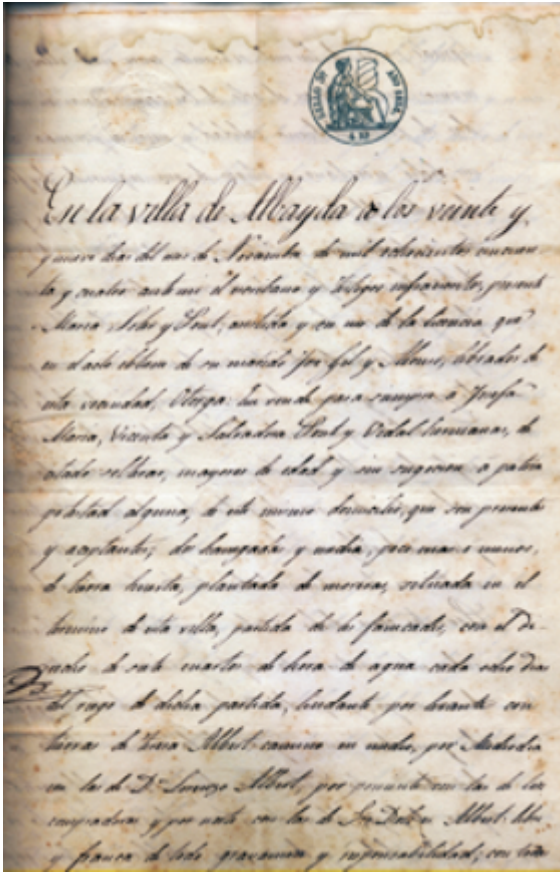 En la villa de Albayda a los veinte y
y nueve dias del mes de Noviembre de mil ochocientos cincuen
ta y cuatro ante mi el escribano y testigos infraescritos, presente
Maria y Pont, asistida y en uso de la licencia que
en el acto obtiene de su marido José Gil y de
esta vecindad, Otorga: Que vende para siempre a Josefa
Maria, Vicenta y Salvadora Pont y Vidal hermanas, de
estado solteras, mayores de edad y sin sugecion a patria
potestad alguna, de este mismo domicilio, que son presentes
y aceptantes; dos hanegadas y media, poco mas o menos,
de tierra huerta, plantada de moreras, situada en el
termino de esta villa, partida de con el de
recho de siete cuartos de hora de agua cada ocho dias
del riego de dicha partida, lindante por levante con
tierras de Albert camino en medio, por Mediodia
con las de D. Lorenzo Albert, por poniente con las de los
compradores y por norte con las de Albert libre
y franca de todo gravamen y responsabilidad; con